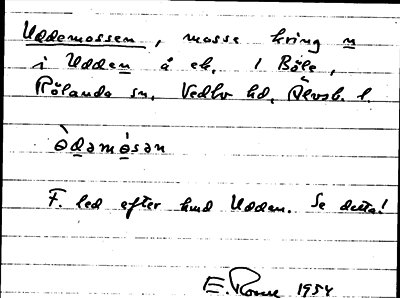 Uddemossen, mosse kring n
i Udden å ek. 1 Böle,
Rölanda sn, Vedbo hd, Älvsb. l.
ò̱dəmò̱sən
F. led efter hmd Udden. Se detta!
E. 1954